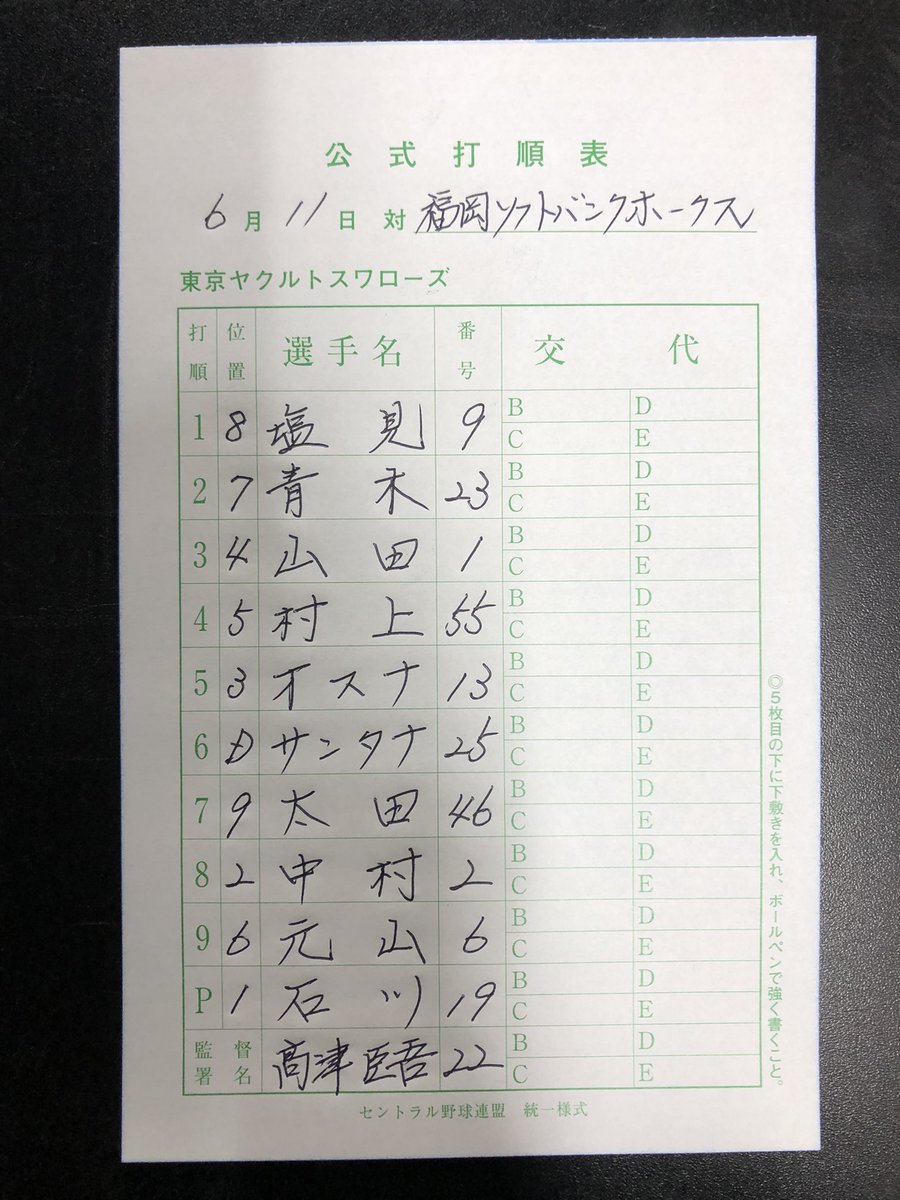 公式打順表
6月11日 対 福岡ソフトバンクホークス
東京ヤクルトスワローズ
打順 位置 選手名 番号 交代
1 8 塩見 9 B D C E
2 7 青木 23 B D C E
3 4 山田 1 B D C E
4 5 村上 55 B D C E
5 3 オスナ 13 B D C E
6 D サンタナ 25 B D C E
7 9 太田 46 B D C E
8 2 中村 2 B D C E
9 6 元山 6 B D C E
P 1 石川 19 B D C E
監督署名 高津臣吾 22 B D C E
セントラル野球連盟 統一様式
◎5枚目の下に下敷きを入れ、ボールペンで強く書くこと。